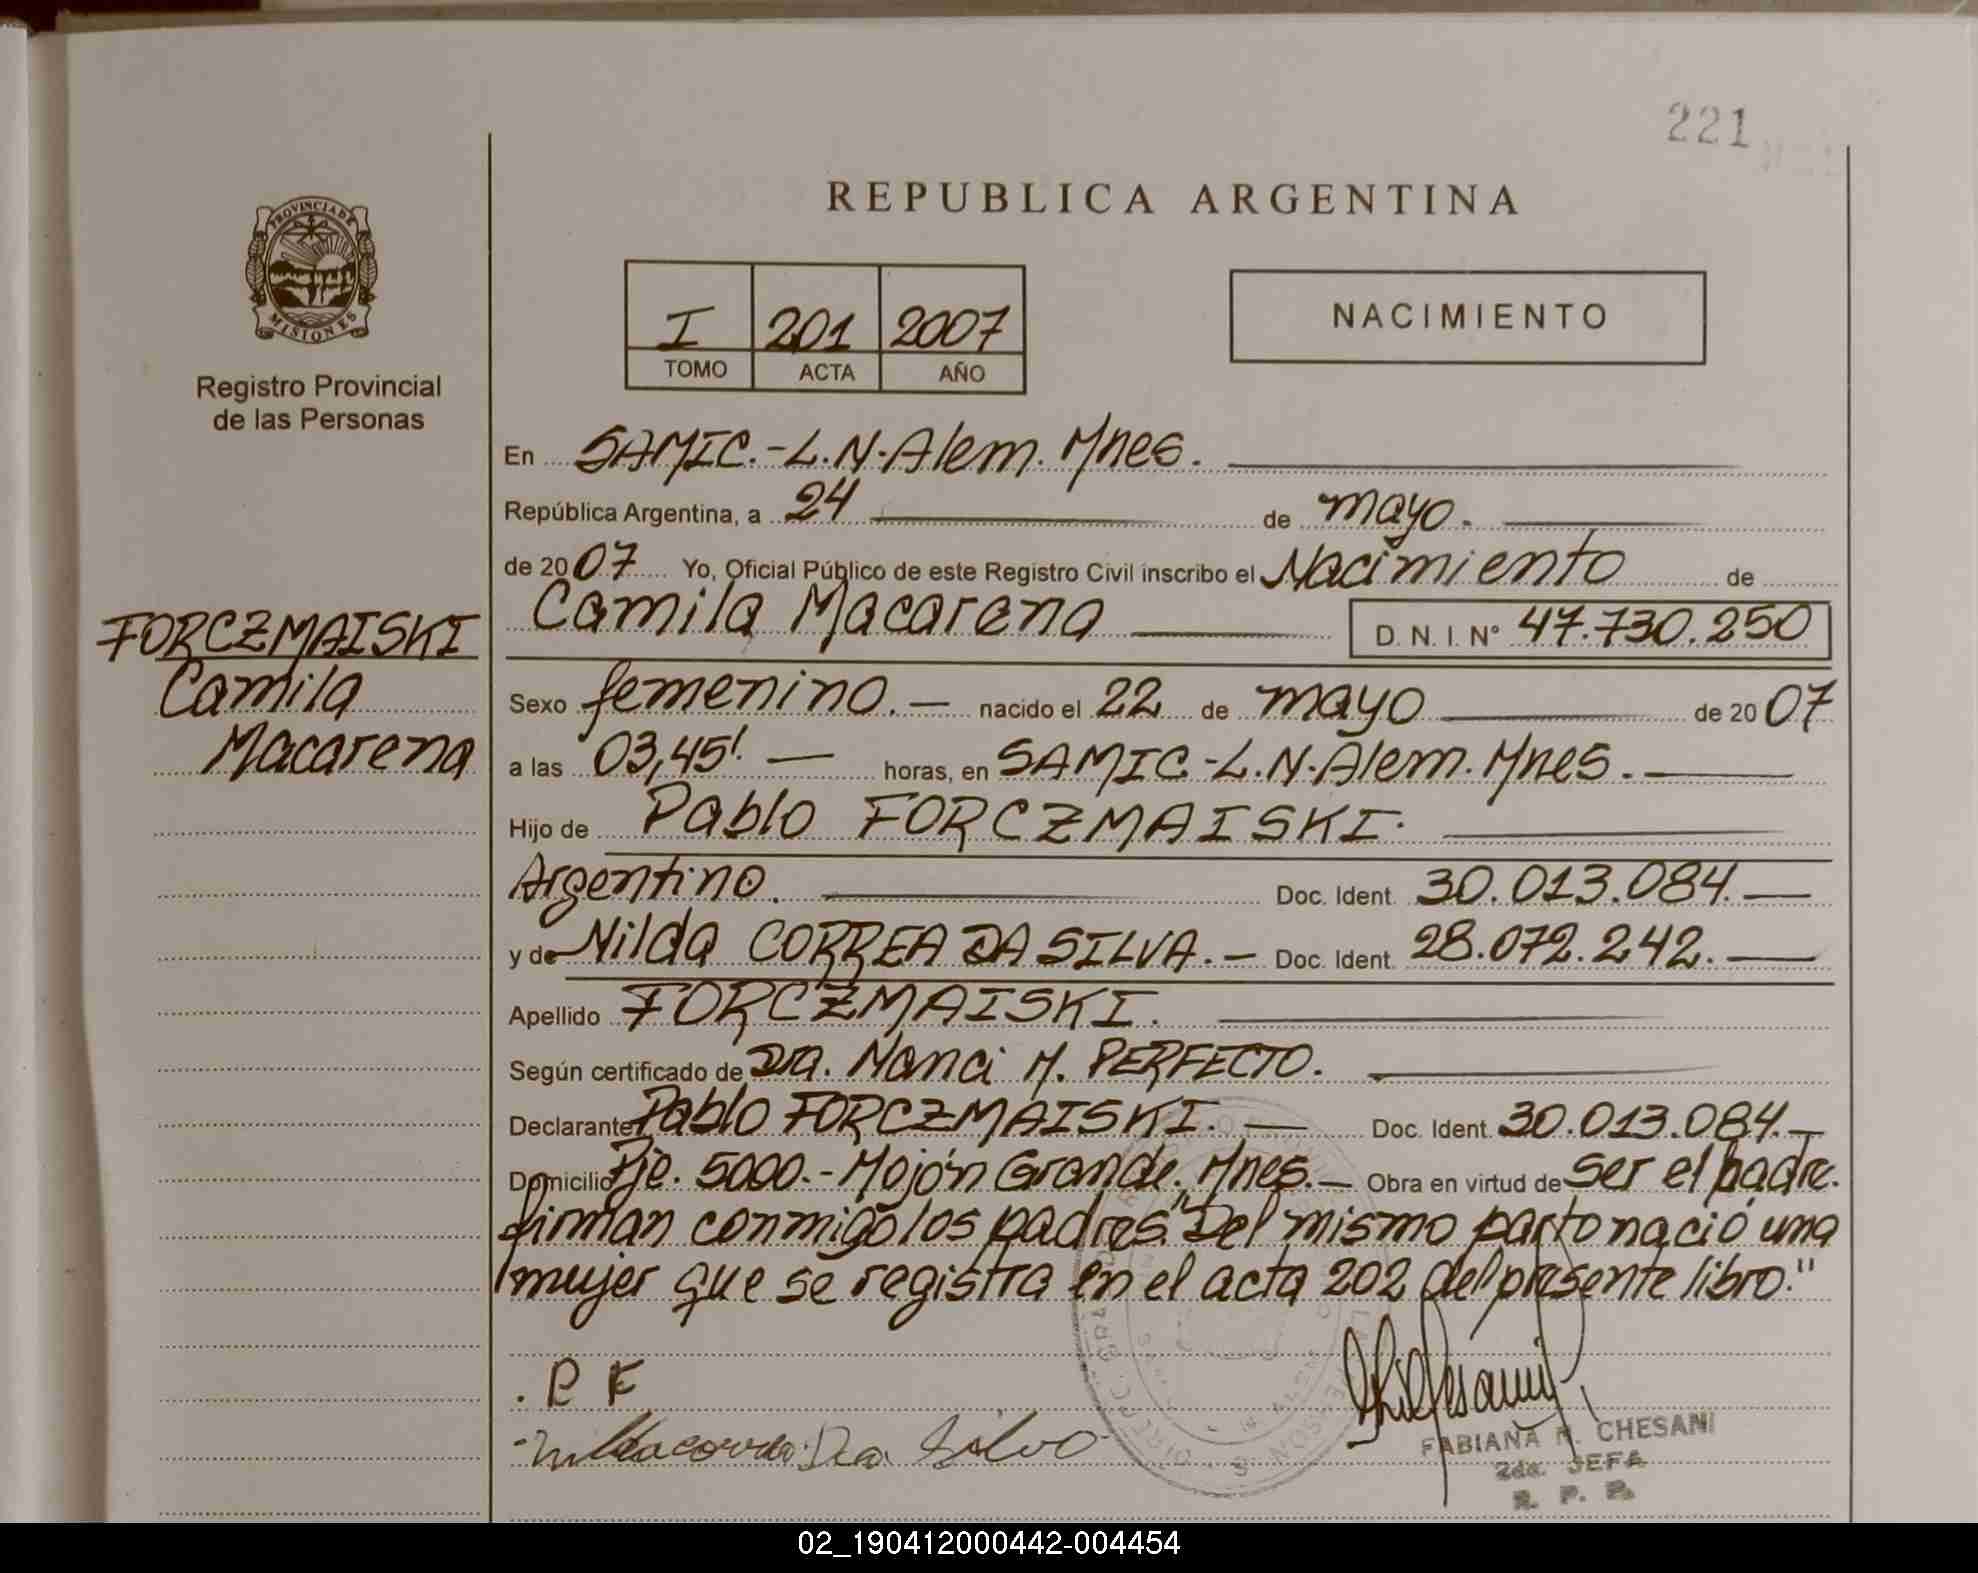 221
REPUBLICA ARGENTINA
PROVINCIA DE
MISIONES
Registro Provincial
de las Personas
I 201 2007
TOMO ACTA AÑO
NACIMIENTO
En SAMIC.-L.N.Alem. Mnes.
República Argentina, a 24 de mayo.
de 2007 Yo, Oficial Público de este Registro Civil inscribo el Nacimiento de
Camila Macarena D. N. I. N° 47.730.250
FORCZMAISKI
Camila
Macarena
Sexo femenino.- nacido el 22 de mayo de 2007
a las 03,45'. - horas, en SAMIC-L.N.Alem. Mnes.
Hijo de Pablo FORCZMAISKI.
Argentino. Doc. Ident. 30.013.084.-
y de Nilda CORREA DA SILVA.- Doc. Ident. 28.072.242.-
Apellido FORCZMAISKI.
Según certificado de Dra. Nanci M. PERFECTO.
Declarante Pablo FORCZMAISKI.- Doc. Ident. 30.013.084.-
Domicilio Pje. 5000.- Mojón Grande. Mnes.- Obra en virtud de ser el padre.
firman conmigo los padres. "Del mismo parto nació una
mujer que se registra en el acta 202 del presente libro."
. P F
Correa Da Silva
FABIANA CHESANI
2da. JEFA
R. P. P.
02_190412000442-004454